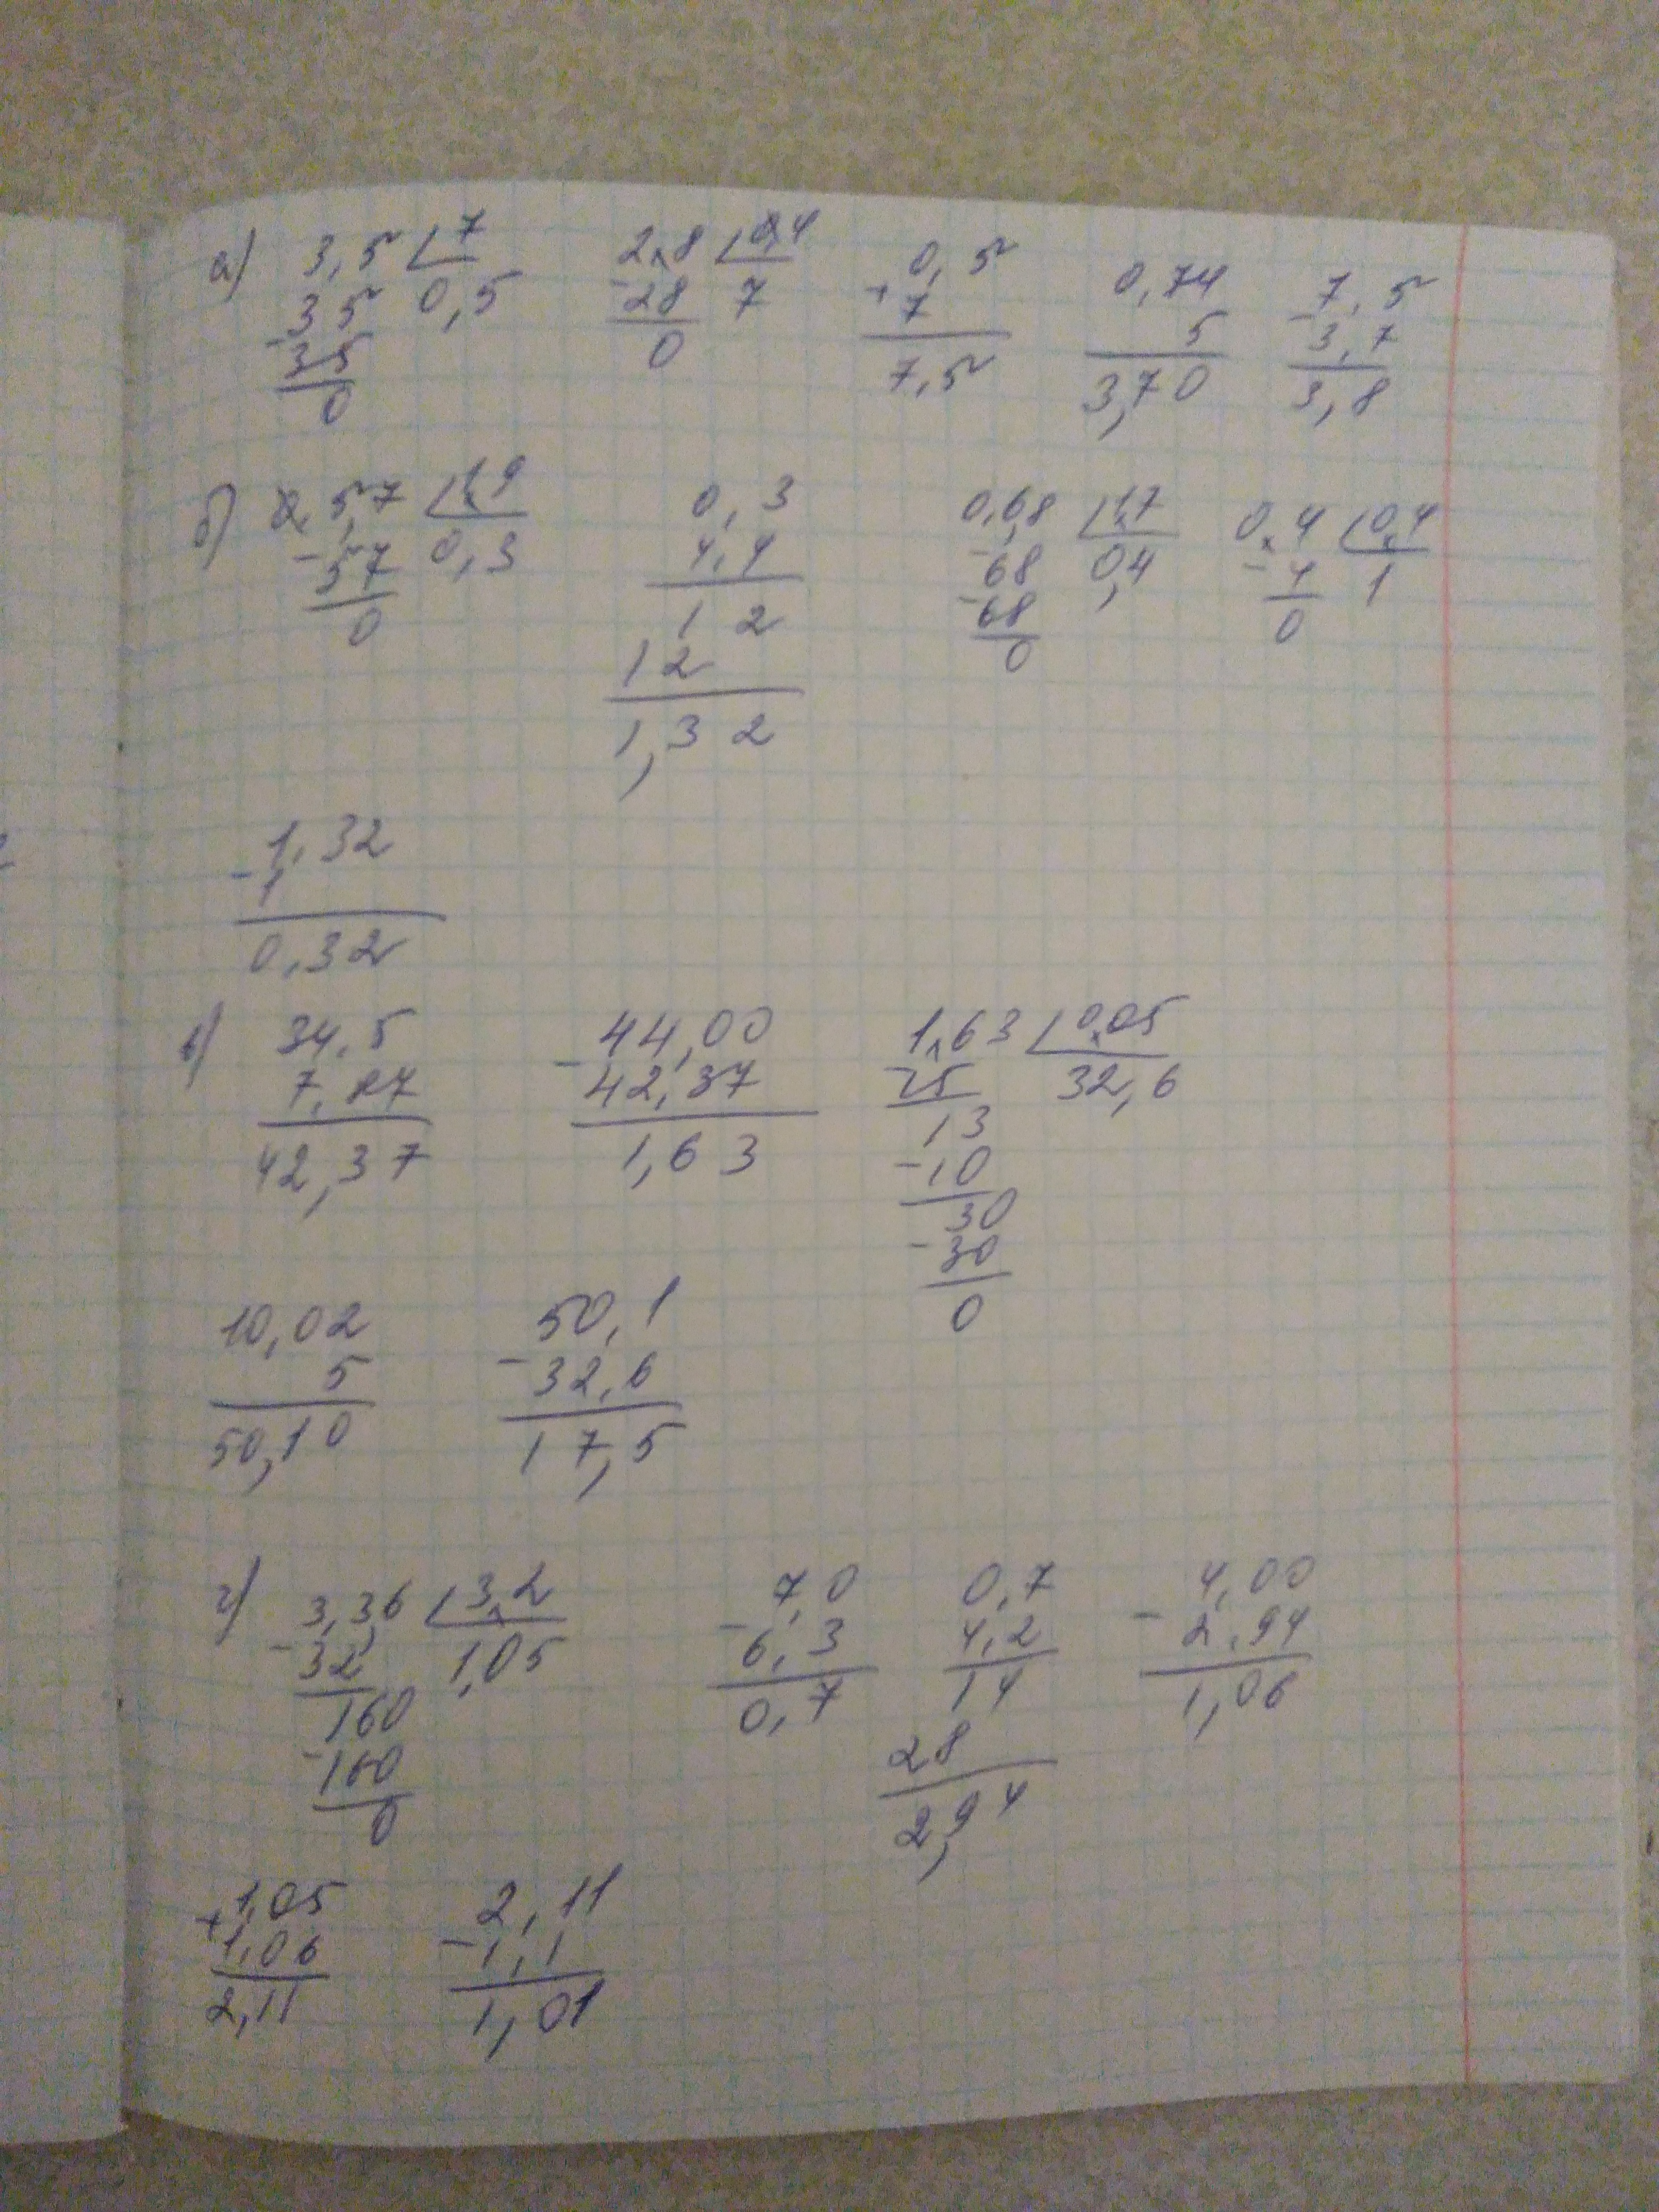 а) 3,5 7 2,8 0,4 0,5 0,74 7,5
- 35 0,5 - 28 7 + 7 5 - 3,7
35 0 7,5 3,70 3,8
0
б) 0,57 1,9 0,3 0,68 1,7 0,4 0,4
- 57 0,3 4,4 - 68 0,4 - 4 1
0 1 2 - 68 0
12 0
1,32
- 1,32
1
0,32
в) 34,5 - 44,00 1,63 0,05
7,87 42,37 - 15 32,6
42,37 1,63 13
- 10
30
- 30
0
10,02 - 50,1
5 32,6
50,10 17,5
г) 3,36 3,2 - 7,0 0,7 - 4,00
- 32 1,05 6,3 4,2 2,94
160 0,7 14 1,06
- 160 28
0 2,94
+ 1,05 - 2,11
1,06 1,1
2,11 1,01